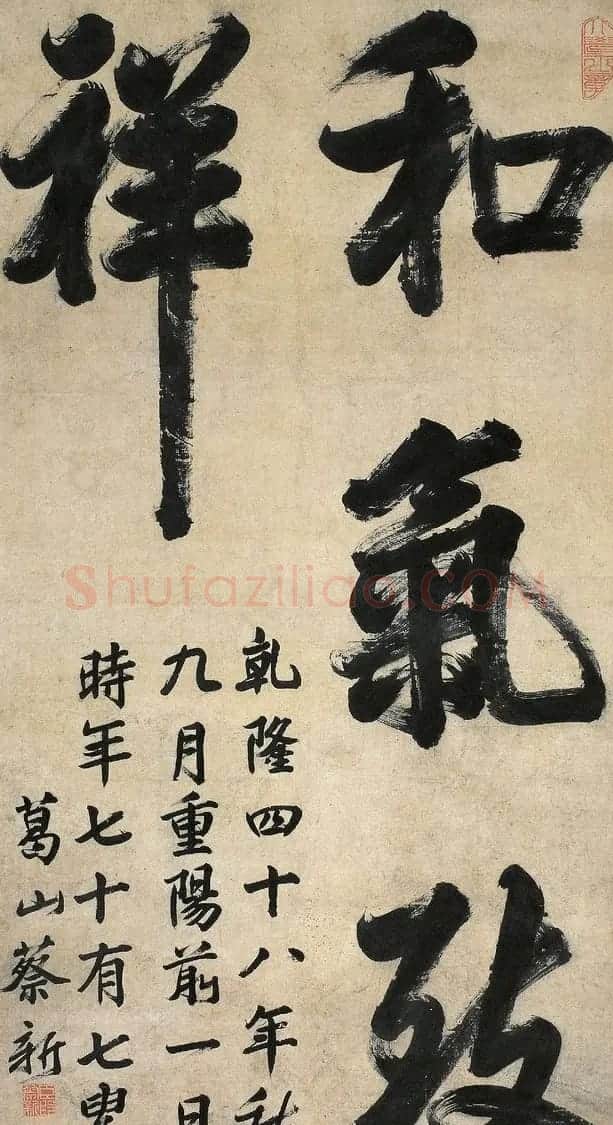 和氣致
祥
乾隆四十八年秋
九月重陽前一日
時年七十有七叟
葛山蔡新
Shufaziliao.COM